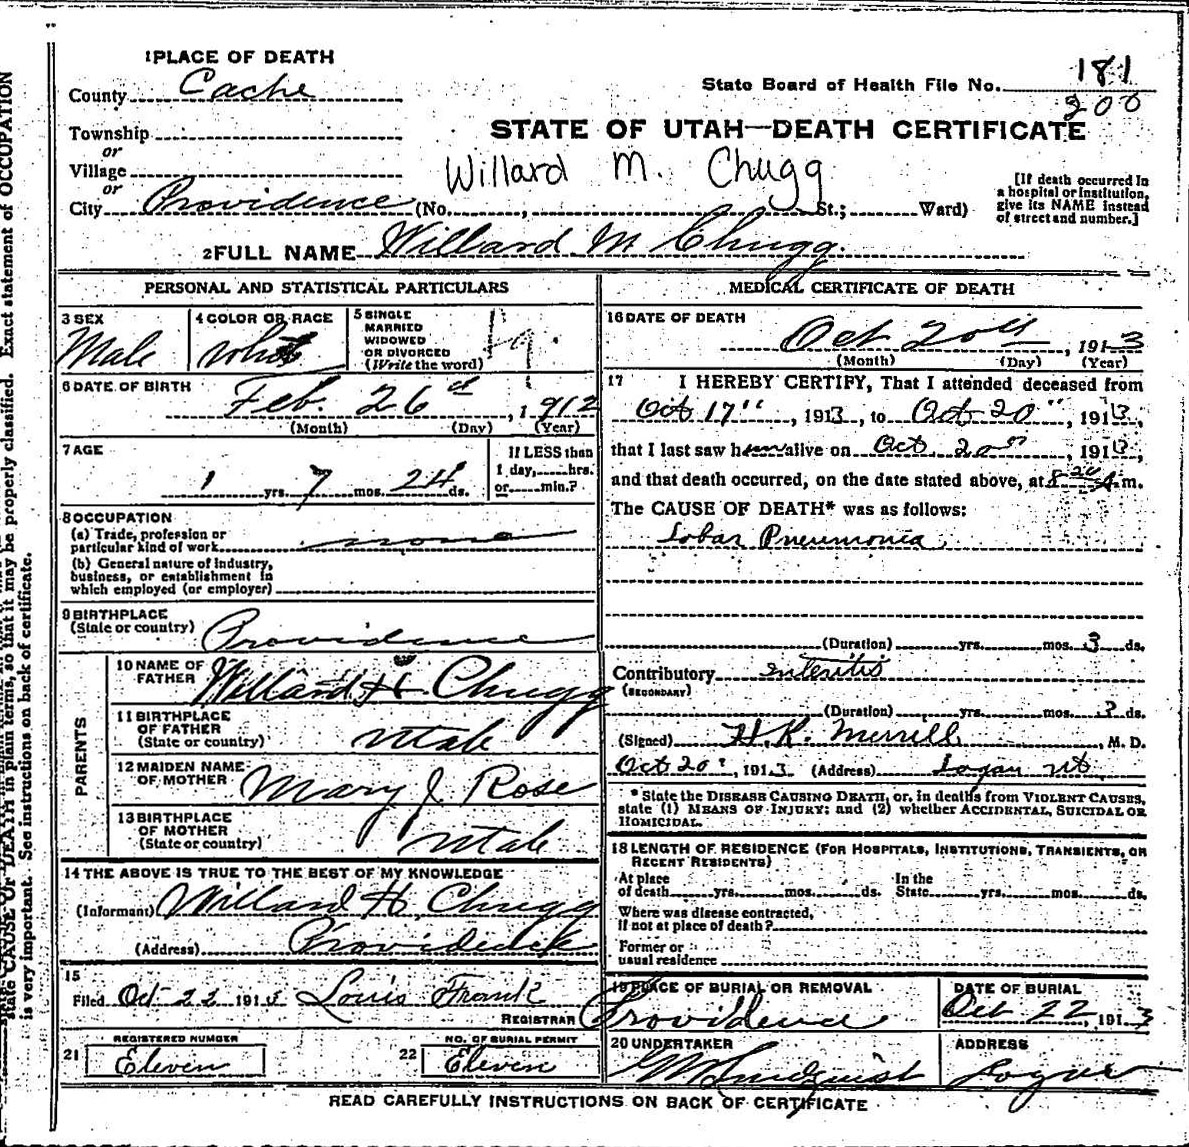 1 PLACE OF DEATH
County Cache
State Board of Health File No. 181
200
Township
or
Village
or
City Providence (No. , St.; Ward)
STATE OF UTAH—DEATH CERTIFICATE
Willard M. Chugg
[If death occurred in
a hospital or institution,
give its NAME instead
of street and number.]
2 FULL NAME Willard M Chugg.
PERSONAL AND STATISTICAL PARTICULARS
3 SEX
Male
4 COLOR OR RACE
White
5 SINGLE
MARRIED
WIDOWED
OR DIVORCED
(Write the word)
6 DATE OF BIRTH
Feb. 26th, 1912
(Month) (Day) (Year)
7 AGE
1 yrs. 7 mos. 24 ds.
If LESS than
1 day, hrs.
or min.?
8 OCCUPATION
(a) Trade, profession or
particular kind of work none
(b) General nature of industry,
business, or establishment in
which employed (or employer)
9 BIRTHPLACE
(State or country) Providence
PARENTS
10 NAME OF
FATHER Willard H Chugg
11 BIRTHPLACE
OF FATHER
(State or country) Utah
12 MAIDEN NAME
OF MOTHER Mary J Rose
13 BIRTHPLACE
OF MOTHER
(State or country) Utah
14 THE ABOVE IS TRUE TO THE BEST OF MY KNOWLEDGE
(Informant) Willard H. Chugg
(Address) Providence
15
Filed Oct 22 1913 Louis Frank
REGISTRAR
REGISTERED NUMBER
21 Eleven
NO. OF BURIAL PERMIT
22 Eleven
MEDICAL CERTIFICATE OF DEATH
16 DATE OF DEATH
Oct 20th, 1913
(Month) (Day) (Year)
17 I HEREBY CERTIFY, That I attended deceased from
Oct 17", 1913, to Oct 20", 1913,
that I last saw him alive on Oct 20th, 1913,
and that death occurred, on the date stated above, at m.
The CAUSE OF DEATH* was as follows:
Lobar Pneumonia
(Duration) yrs. mos. 3 ds.
Contributory Enteritis
(SECONDARY)
(Duration) yrs. mos. 3 ds.
(Signed) H. K. Merrill, M. D.
Oct 20, 1913 (Address) Logan Ut
* State the DISEASE CAUSING DEATH, or, in deaths from VIOLENT CAUSES,
state (1) MEANS OF INJURY; and (2) whether ACCIDENTAL, SUICIDAL OR
HOMICIDAL.
18 LENGTH OF RESIDENCE (FOR HOSPITALS, INSTITUTIONS, TRANSIENTS, OR
RECENT RESIDENTS)
At place In the
of death yrs. mos. ds. State yrs. mos. ds.
Where was disease contracted,
if not at place of death?
Former or
usual residence
19 PLACE OF BURIAL OR REMOVAL
Providence
DATE OF BURIAL
Oct 22, 1913
20 UNDERTAKER
Lindquist
ADDRESS
Logan
READ CAREFULLY INSTRUCTIONS ON BACK OF CERTIFICATE
state CAUSE OF DEATH in plain terms, so that it may be properly classified. Exact statement of OCCUPATION
is very important. See instructions on back of certificate.